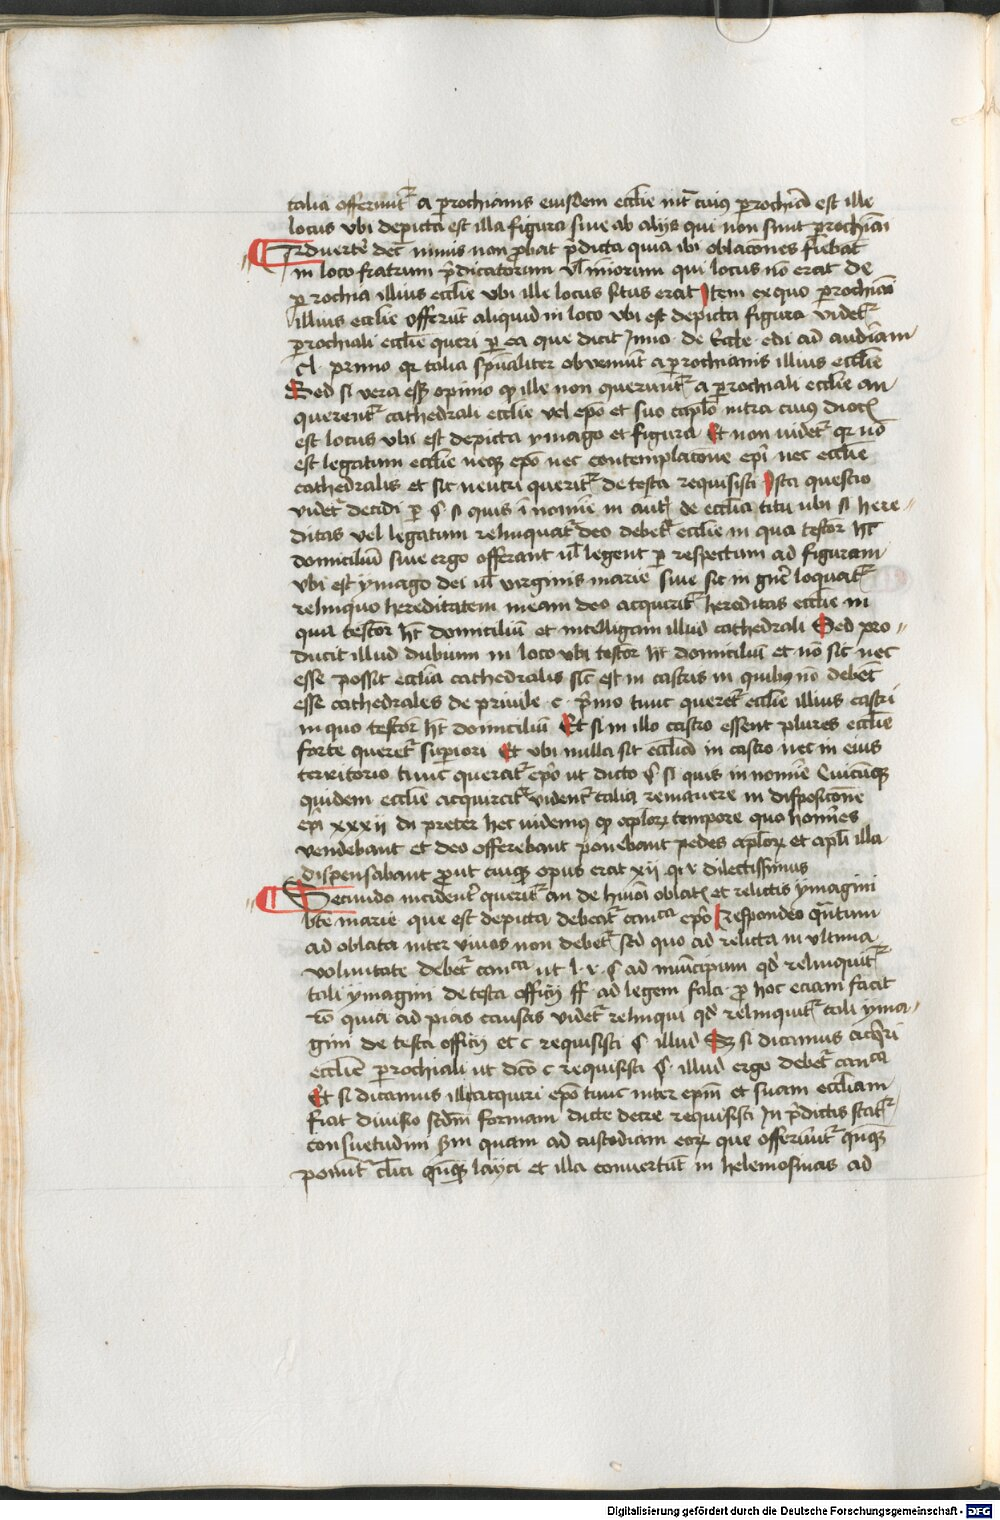 talia offerunt᷑ a ꝑrochianis eiusdem ecclie int͛ cuius ꝑrochia est ille
locus vbi depicta est illa figura siue ab alijs qui non sunt ꝑrochiani
Aduerte dec̄ nimis non ꝓbat p̄dicta quia ibi oblacōnes fiebāt
in loco fratrum p̄dicatorum vl̄ minorum qui locus nō erat de
ꝑrochia illius ecclie vbi ille locus situs erat Item ex quo ꝑrochiani
illius ecclie offerūt aliquid in loco vbi est depicta figura videt᷑
ꝑrochiali ecclie queri ꝑ ea que dicit Inno. de eccle. edi ad audiam
cl. primo qr talia spūaliter obveniūt a ꝑrochianis illius ecclie
Sed si vera esset opinio ꝙ ille non querunt᷑ a ꝑrochiali ecclie an
querent᷑ cathedrali ecclie vel epō et suo caplo intra cuius dioc̄
est locus vbi est depicta ymago et figura Et non videt᷑ qr nō
est legatum ecclie neqꝫ epō nec contemplacōne epī nec ecclie
cathedralis et sic neutri querit᷑ de testa requisisti Ista questio
videt᷑ decidi ꝑ § si quis ī nomīe in aut̄ de ecclia titu ubi si here
ditas vel legatum relinquat᷑ deo debet᷑ ecclie in qua testor ht̄
domiciliū siue ergo offerant ul̄ legent ꝑ respectum ad figuram
vbi est ymago dei ul̄ virginis marie siue sic in gn̄e loquat᷑
relinquo hereditatem meam deo acquirit᷑ hereditas ecclie in
qua testor ht̄ domiciliū et intelligam illud cathedrali Sed pro
ducit illud dubium in loco vbi testor ht̄ domiciliū et nō sit nec
esse possit ecclia cathedralis sic̄ est in castris in quibꝫ nō debēt
esse cathedrales de priuile. c. p̄mo tunc queret᷑ ecclie illius castri
in quo testor ht̄ domiciliū Et si in illo castro essent plures ecclie
forte queret᷑ suꝑiori Et vbi nulla sit ecclia in castro nec in eius
territorio tunc querat᷑ epō ut dicto § si quis in nomīe Cuicūqꝫ
quidem ecclie acquirat᷑ vident᷑ talia remanere in disposicōne
epī xxxii dn preter hec videmus ꝙ aplorꝝ tempore quo homīes
vendebant et deo offerebant ponebant pedes aplorꝝ et apli illa
dispensabant ꝓut cuiqꝫ opus erat xii .q. i. dilectissimus
Secundo incident᷑ querit᷑ an de hmōi oblat̄ et relictis ymagini
bte marie que est depicta debeat᷑ canca epō Respondeo q̄ntum
ad oblata inter viuos non debet᷑ sed quo ad relicta in vltima
voluntate debet᷑ canca ut l. v. § ad municipum qd relinquit᷑
tali ymagini de testa officij ff. ad legem falci. ꝓ hoc eciam facit
rō quia ad pias causas videt᷑ relinqui qd relinquit᷑ tali yma
gini de testa officij et c requisisti § illud Sꝫ si dicamus acq̄ri
ecclie ꝑrochiali ut dcō c requisisti § illud ergo debet᷑ canca
Et si dicamus illi acquiri epō tunc inter epm et suam eccliam
fiat diuisio scdm formam dicte decre requisisti In p̄dictis stat᷑
consuetudini scdm quam ad custodiam eorꝝ que offerunt᷑ qn̄qꝫ
ponūt᷑ clici qn̄qꝫ layci et illa conuertūt᷑ in helemosinas ad
Digitalisierung gefördert durch die Deutsche Forschungsgemeinschaft - DFG